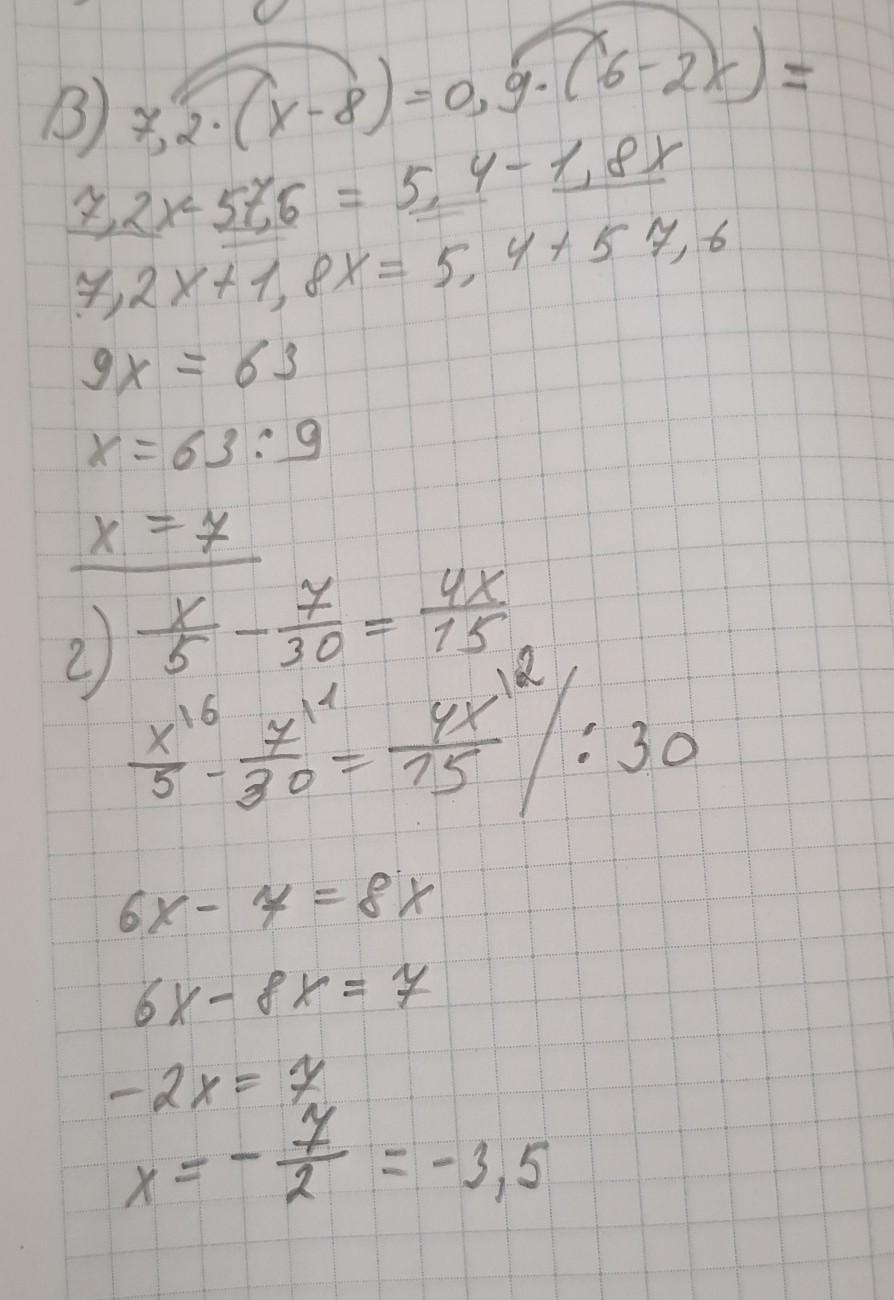 в) 7,2·(x-8)=0,9·(6-2x)=
7,2x-57,6=5,4-1,8x
7,2x+1,8x=5,4+57,6
9x=63
x=63:9
x=7
г) x/5-7/30=4x/15
x\6/5-7\1/30=4x\2/15/:30
6x-7=8x
6x-8x=7
-2x=7
x=-7/2=-3,5